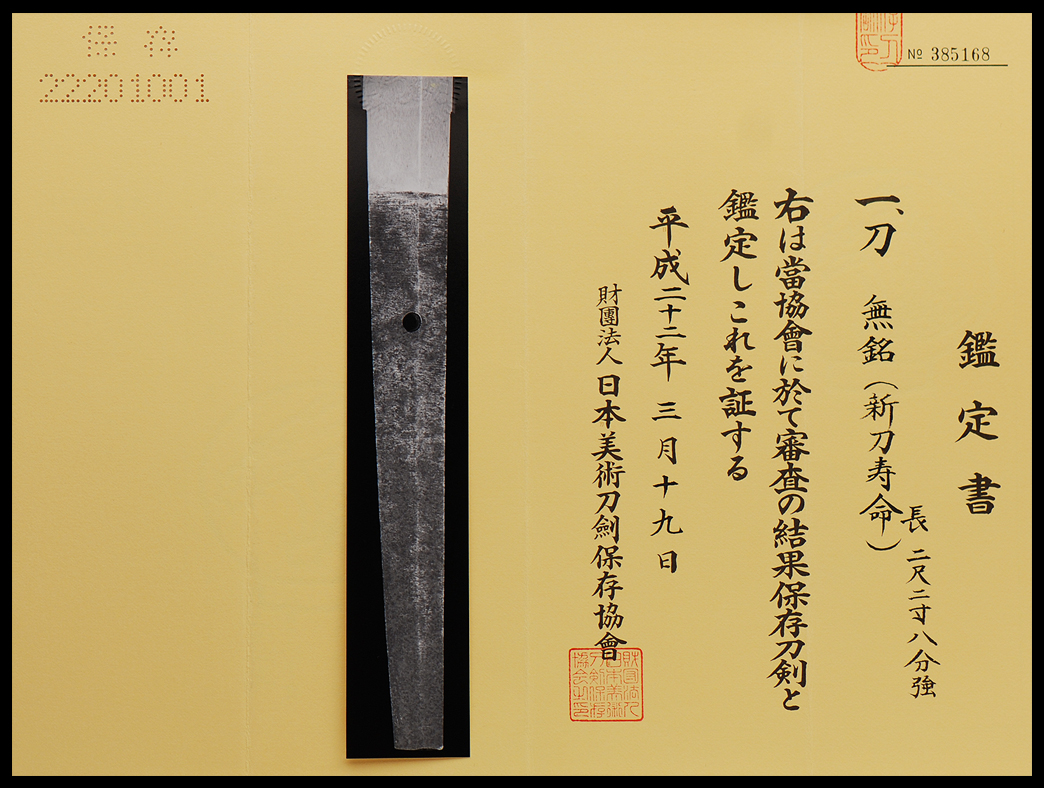 № 385168
鑑定書
一、刀 無銘(新刀寿命)
長 二尺二寸八分強
右は當協會に於て審査の結果保存刀剣と
鑑定しこれを証する
平成二十二年 三月十九日
財團法人 日本美術刀劍保存協會
財團法人日本美術刀剣保存協会之印
保存
22201001